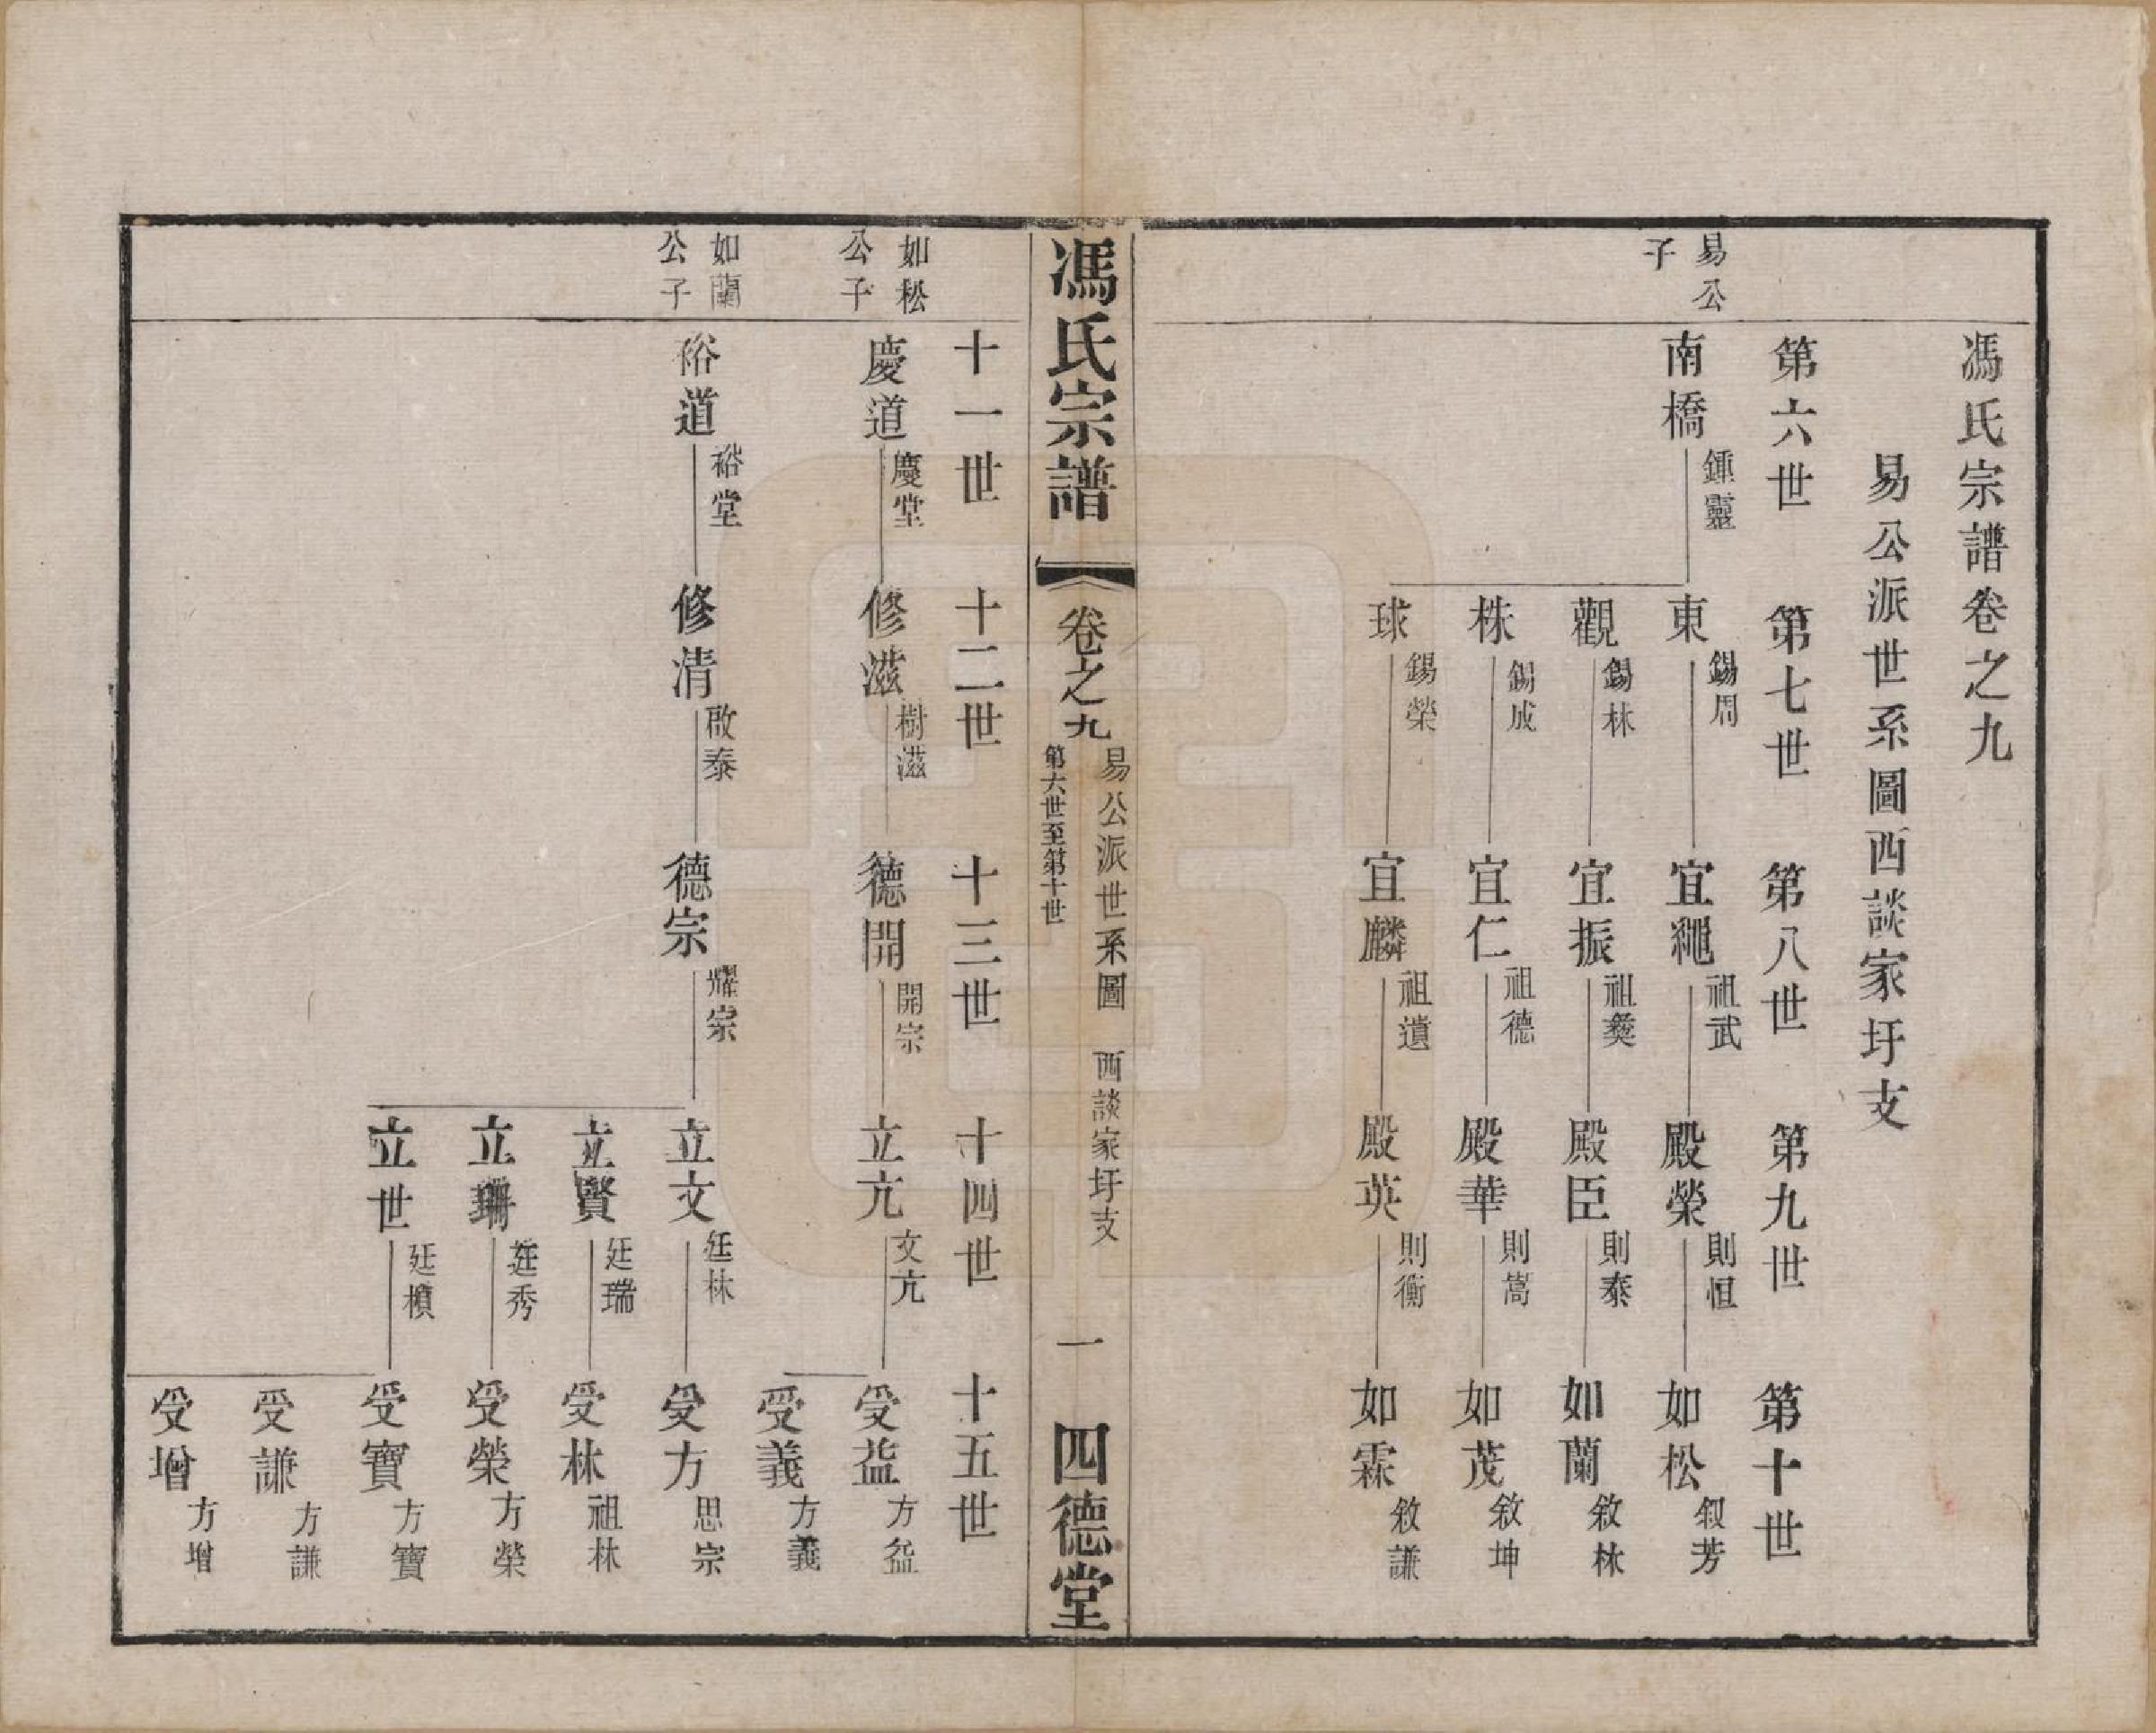 馮氏宗譜卷之九
易公派世系圖西談家圩支
第六世
第七世
第八世
第九世
第十世
易公
子
南橋
鍾靈
東
錫周
宜繩
祖武
殿榮
則恒
如松
叙芳
觀
錫林
宜振
祖彝
殿臣
則泰
如蘭
敘林
株
錫成
宜仁
祖德
殿華
則嵩
如茂
敘坤
球
錫榮
宜麟
祖遺
殿英
則衡
如霖
敘謙
馮氏宗譜
卷之九
易公派世系圖 西談家圩支
第六世至第十世
一
四德堂
十一世
十二世
十三世
十四世
十五世
如松
公子
慶道
慶堂
修滋
樹滋
德開
開宗
立亢
文亢
受益
方益
受義
方義
如蘭
公子
裕道
裕堂
修清
啟泰
德宗
耀宗
立文
廷林
受方
思宗
立賢
廷瑞
受林
祖林
立珊
廷秀
受榮
方榮
立世
廷楨
受寶
方寶
受謙
方謙
受增
方增